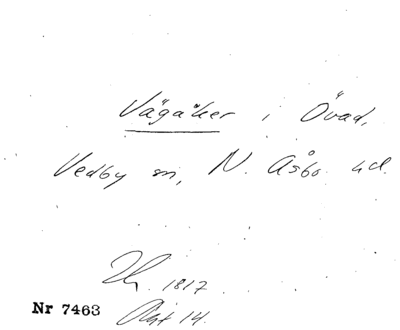 Vägåker i Övad,
Vedby sn, N. Åsbo hd.
1817
Akt 14.
Nr 7463